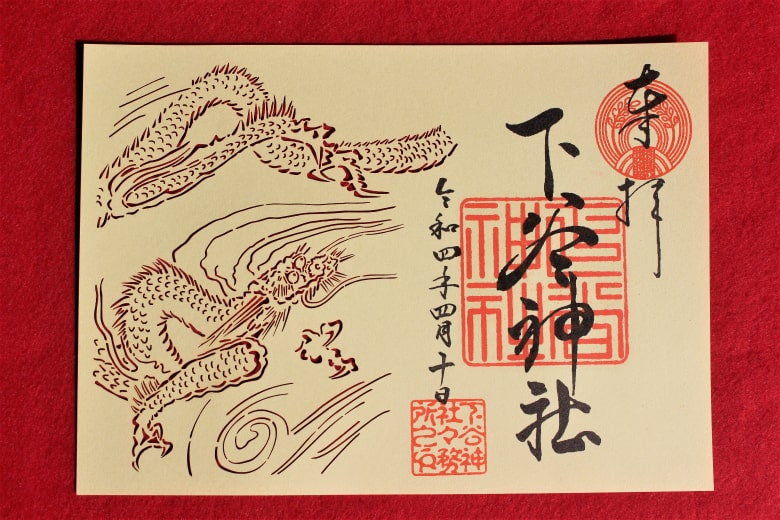 奉拝
下谷神社
令和四年四月十日
下谷神
社々務
所之印